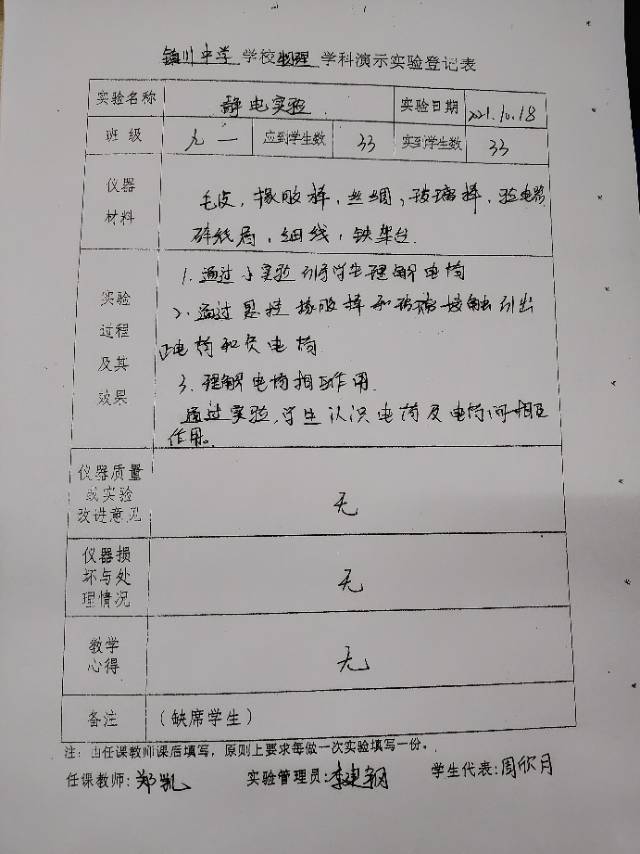 镇川中学 学校物理 学科演示实验登记表
实验名称 静电实验 实验日期 2021.10.18
班 级 九一 应到学生数 33 实到学生数 33
仪器
材料
毛皮，橡胶棒，丝绸，玻璃棒，验电器
碎纸屑，细线，铁架台.
实验
过程
及其
效果
1. 通过小实验引导学生理解电荷
2. 通过悬挂橡胶棒和玻璃接触引出
正电荷和负电荷
3. 理解电荷相互作用.
通过实验，学生认识电荷及电荷间相互
作用。
仪器质量
或实验
改进意见
无
仪器损
坏与处
理情况
无
教学
心得
无
备注 （缺席学生）
注：由任课教师课后填写，原则上要求每做一次实验填写一份。
任课教师：郑凯 实验管理员：李建钢 学生代表：周欣月